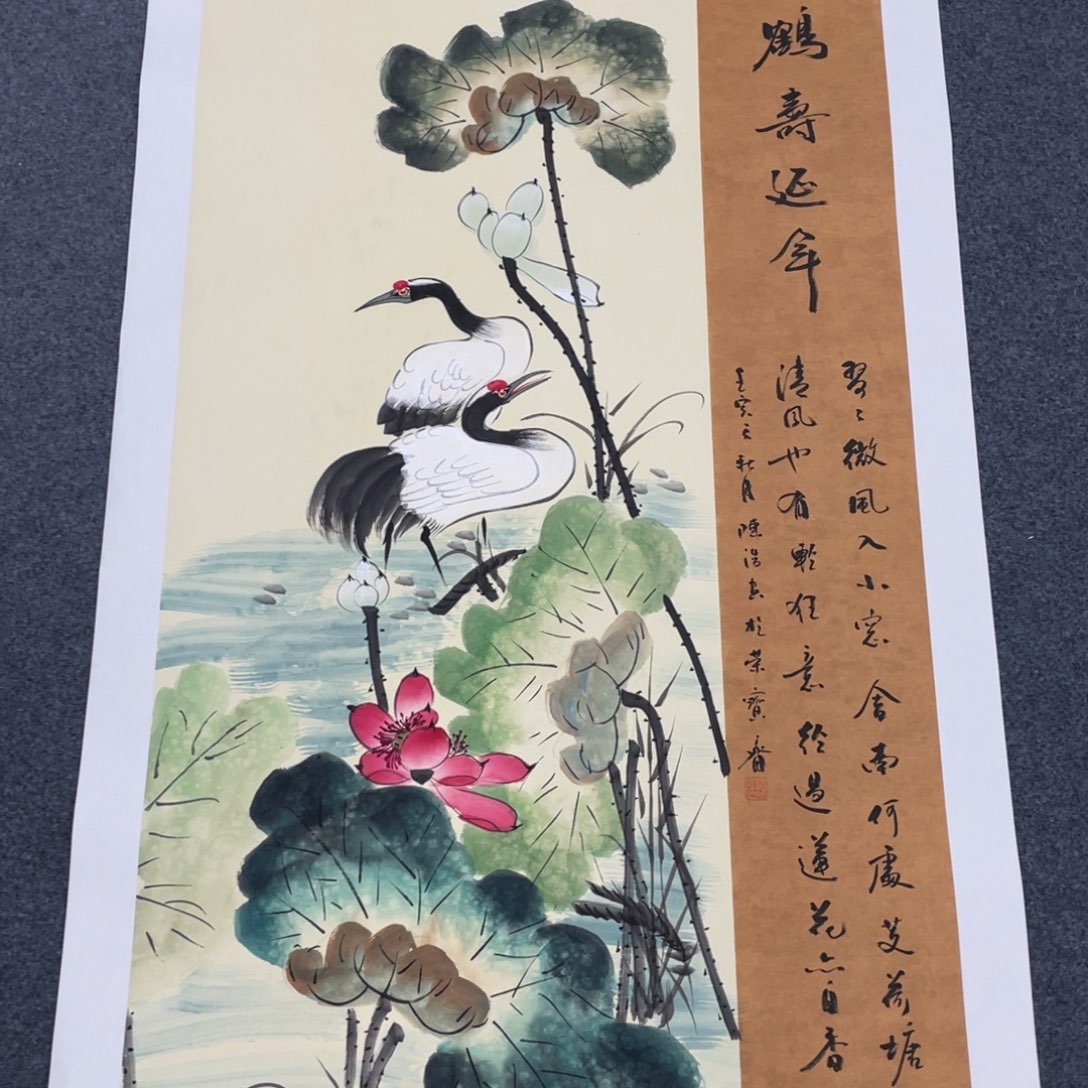 鶴壽延年
習〻微風入小窓舍南何處芰荷塘
清風也有輕狂意經過蓮花亦自香
壬寅之秋月陳浩書於榮寶齋